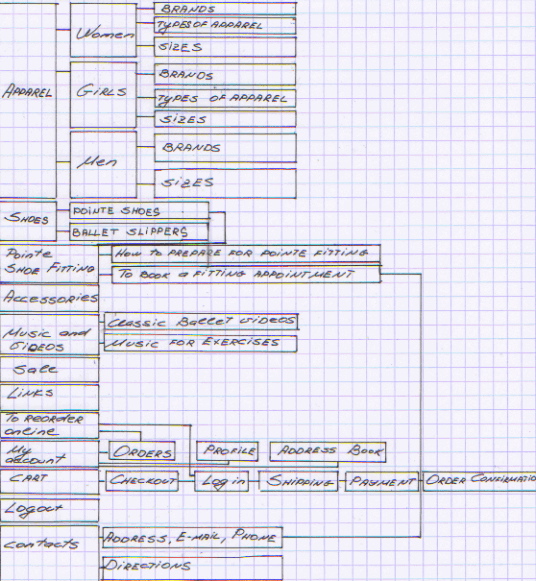 BRANDS
Women
TYPES OF APPAREL
SIZES
APPAREL
GIRLS
BRANDS
TYPES OF APPAREL
SIZES
Men
BRANDS
SIZES
SHOES
POINTE SHOES
BALLET SLIPPERS
Pointe
SHOE FITTING
HOW to PREPARE FOR POINTE FITTING
TO BOOK a FITTING APPOINTMENT
ACCESSORIES
MUSIC and
VIDEOS
Classic Ballet VIDEOS
MUSIC FOR EXERCISES
Sale
LINKS
To REORDER
online
My
account
ORDERS
PROFILE
ADDRESS BOOK
CART
CHECKOUT
Log in
SHIPPING
PAYMENT
ORDER CONFIRMATIO
Logout
contacts
ADDRESS, E-MAIL, PHONE
DIRECTIONS